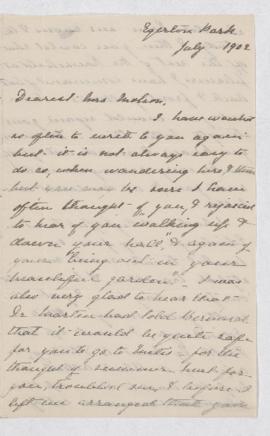 Egerton Park
July 1902
Dearest Mrs Molson,
I have wanted
so often to write to you again
but it is not always easy to
do so, when wandering here & there
but you may be sure I have
often thought of you & rejoiced
to hear of you walking up &
down your hall, & again of
your "being out in your
beautiful garden" - I was
also very glad to hear that
Dr Martin had told
that it would be quite safe
for you to go to Métis - for the
thought of
you, troubled me, & before I
left we arranged that you